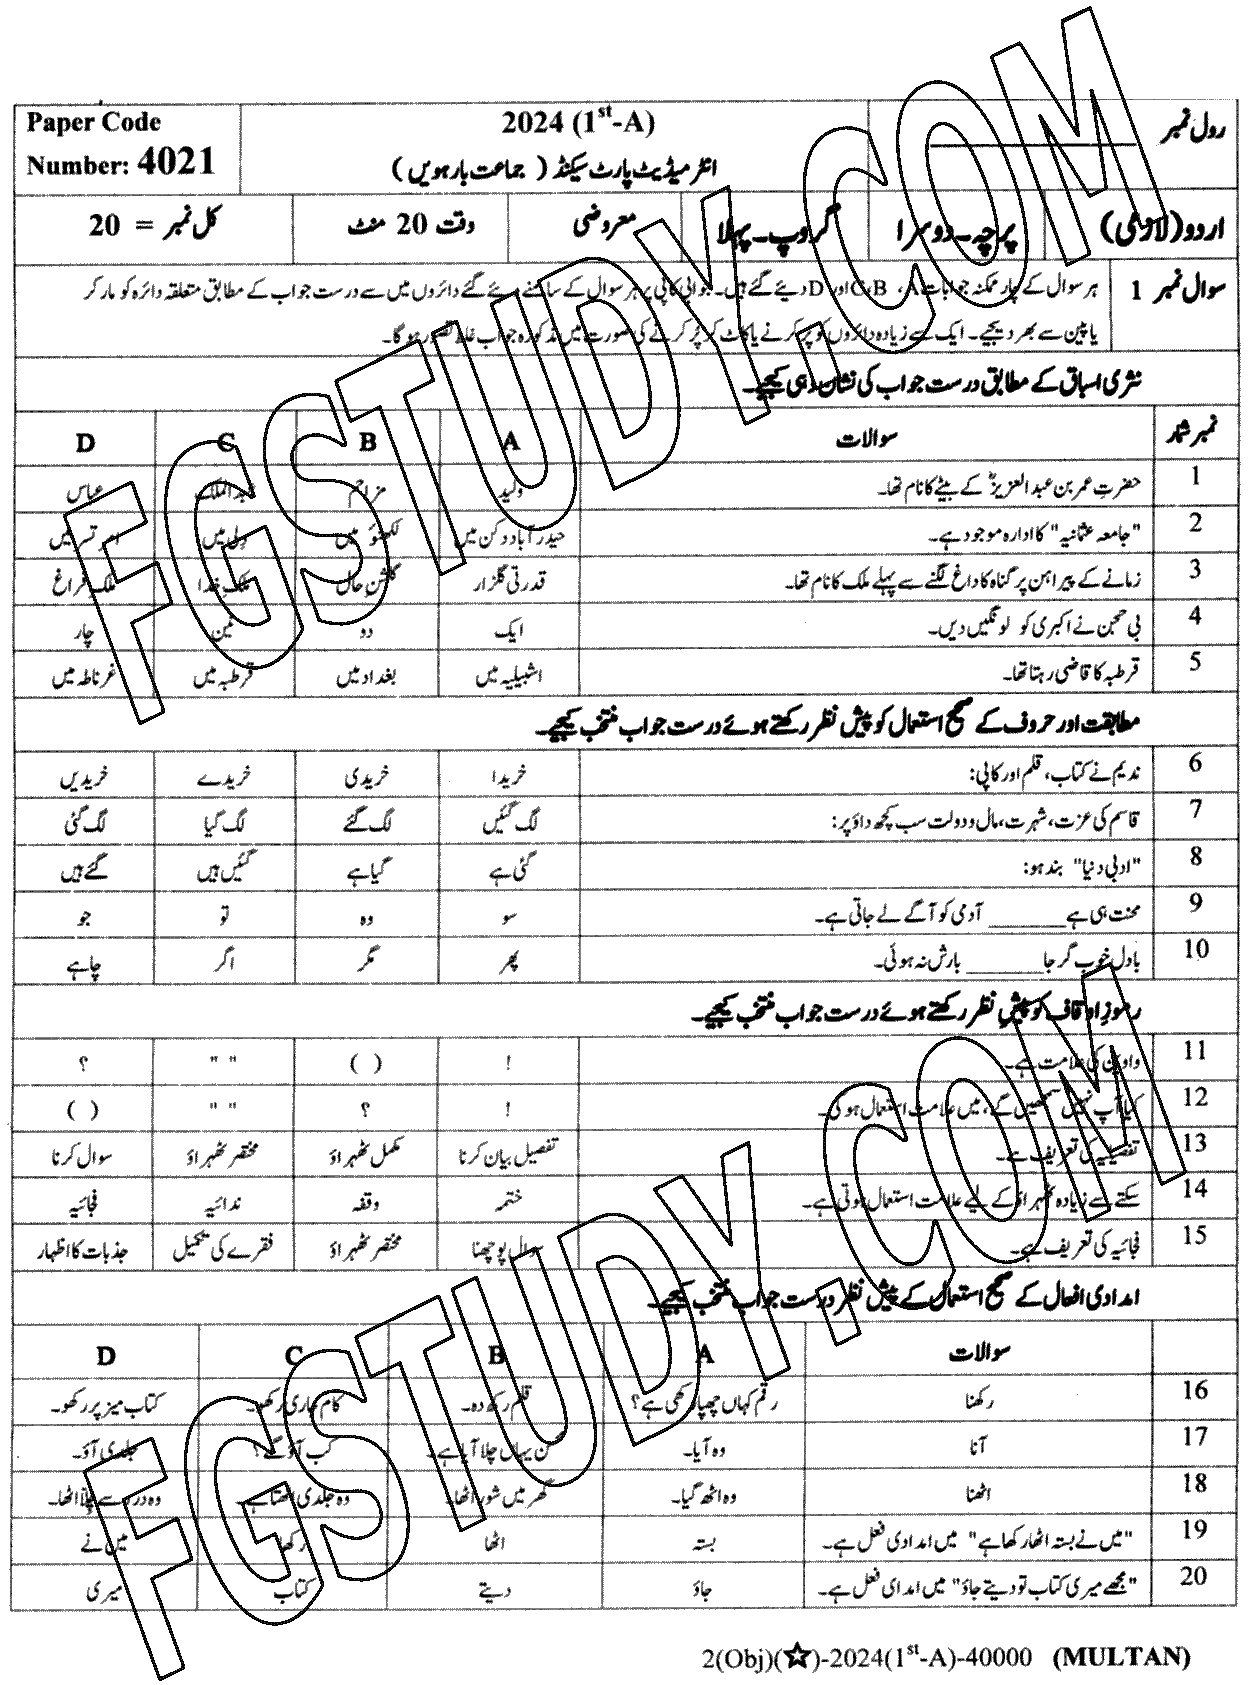 Paper Code
Number: 4021
2024 (1st-A)
انٹرمیڈیٹ پارٹ سیکنڈ ( جماعت بارہویں )
رول نمبر
اردو(لازمی) پرچہ۔دوسرا گروپ۔پہلا معروضی وقت 20 منٹ کل نمبر = 20
سوال نمبر 1 ہر سوال کے چار ممکنہ جوابات A، B، C اور D دیئے گئے ہیں۔ جوابی کاپی پر ہر سوال کے سامنے دیئے گئے دائروں میں سے درست جواب کے مطابق متعلقہ دائرہ کو مارکر
یا پین سے بھر دیجیے۔ ایک سے زیادہ دائروں کو پُر کرنے یا کاٹ کر پُر کرنے کی صورت میں مذکورہ جواب غلط تصور ہوگا۔
نثری اسباق کے مطابق درست جواب کی نشان دہی کیجیے۔
نمبر شمار سوالات A B C D
1 حضرت عمر بن عبدالعزیزؒ کے بیٹے کا نام تھا۔ ولید مزاحم عبدالملک عباس
2 "جامعہ عثمانیہ" کا ادارہ موجود ہے۔ حیدرآباد دکن میں لکھنؤ میں دلی میں امرتسر میں
3 زمانے کے پیراہن پر گناہ کا داغ لگنے سے پہلے ملک کا نام تھا۔ قدرتی گلزار گلشن حال ملک خدا ملک فراغ
4 بی حجن نے اکبری کو لونگیں دیں۔ ایک دو تین چار
5 قرطبہ کا قاضی رہتا تھا۔ اشبیلیہ میں بغداد میں قرطبہ میں غرناطہ میں
مطابقت اور حروف کے صحیح استعمال کو پیش نظر رکھتے ہوئے درست جواب منتخب کیجیے۔
6 ندیم نے کتاب، قلم اور کاپی: خریدا خریدی خریدے خریدیں
7 قاسم کی عزت، شہرت، مال و دولت سب کچھ داؤ پر: لگ گئیں لگ گئے لگ گیا لگ گئی
8 "ادبی دنیا" بند ہو: گئی ہے گیا ہے گئیں ہیں گئے ہیں
9 محنت ہی ہے ______ آدمی کو آگے لے جاتی ہے۔ سو وہ تو جو
10 بادل خوب گرجا ______ بارش نہ ہوئی۔ پھر مگر اگر چاہے
رموز اوقاف کو پیش نظر رکھتے ہوئے درست جواب منتخب کیجیے۔
11 واوین کی علامت ہے۔ ! ( ) " " ؟
12 کیا آپ نہیں سمجھیں گے، میں علامت استعمال ہوگی۔ ! ؟ " " ( )
13 تفصیلیہ کی تعریف ہے۔ تفصیل بیان کرنا مکمل ٹھہراؤ مختصر ٹھہراؤ سوال کرنا
14 سکتے سے زیادہ ٹھہراؤ کے لیے علامت استعمال ہوتی ہے۔ ختمہ وقفہ ندائیہ فجائیہ
15 فجائیہ کی تعریف ہے۔ سوال پوچھنا مختصر ٹھہراؤ فقرے کی تکمیل جذبات کا اظہار
امدادی افعال کے صحیح استعمال کے پیش نظر درست جواب منتخب کیجیے۔
سوالات A B C D
16 رکھنا رقم کہاں چھپا رکھی ہے؟ قلم رکھ دو۔ کام جاری رکھو۔ کتاب میز پر رکھو۔
17 آنا وہ آیا۔ کون یہاں چلا آیا ہے۔ کب آؤ گے؟ جلدی آؤ۔
18 اٹھنا وہ اٹھ گیا۔ گھر میں شور اٹھا۔ وہ جلدی اٹھتا ہے۔ وہ درد سے چلّا اٹھا۔
19 "میں نے بستہ اٹھا رکھا ہے" میں امدادی فعل ہے۔ بستہ اٹھا رکھا میں نے
20 "مجھے میری کتاب تو دیتے جاؤ" میں امدای فعل ہے۔ جاؤ دیتے کتاب میری
2(Obj)(☆)-2024(1st-A)-40000 (MULTAN)
FGSTUDY.COM
FGSTUDY.COM